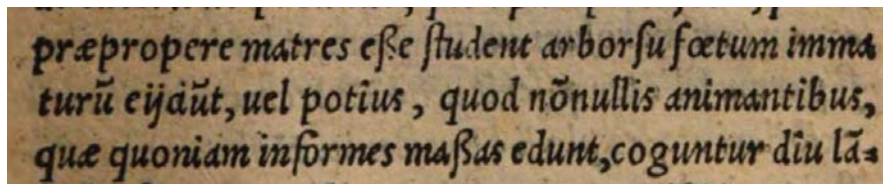 præpropere matres eſſe ſtudent arborſu fœtum imma
turũ eijciũt, uel potius, quod nõnullis animantibus,
quæ quoniam informes maſſas edunt, coguntur diu lã=